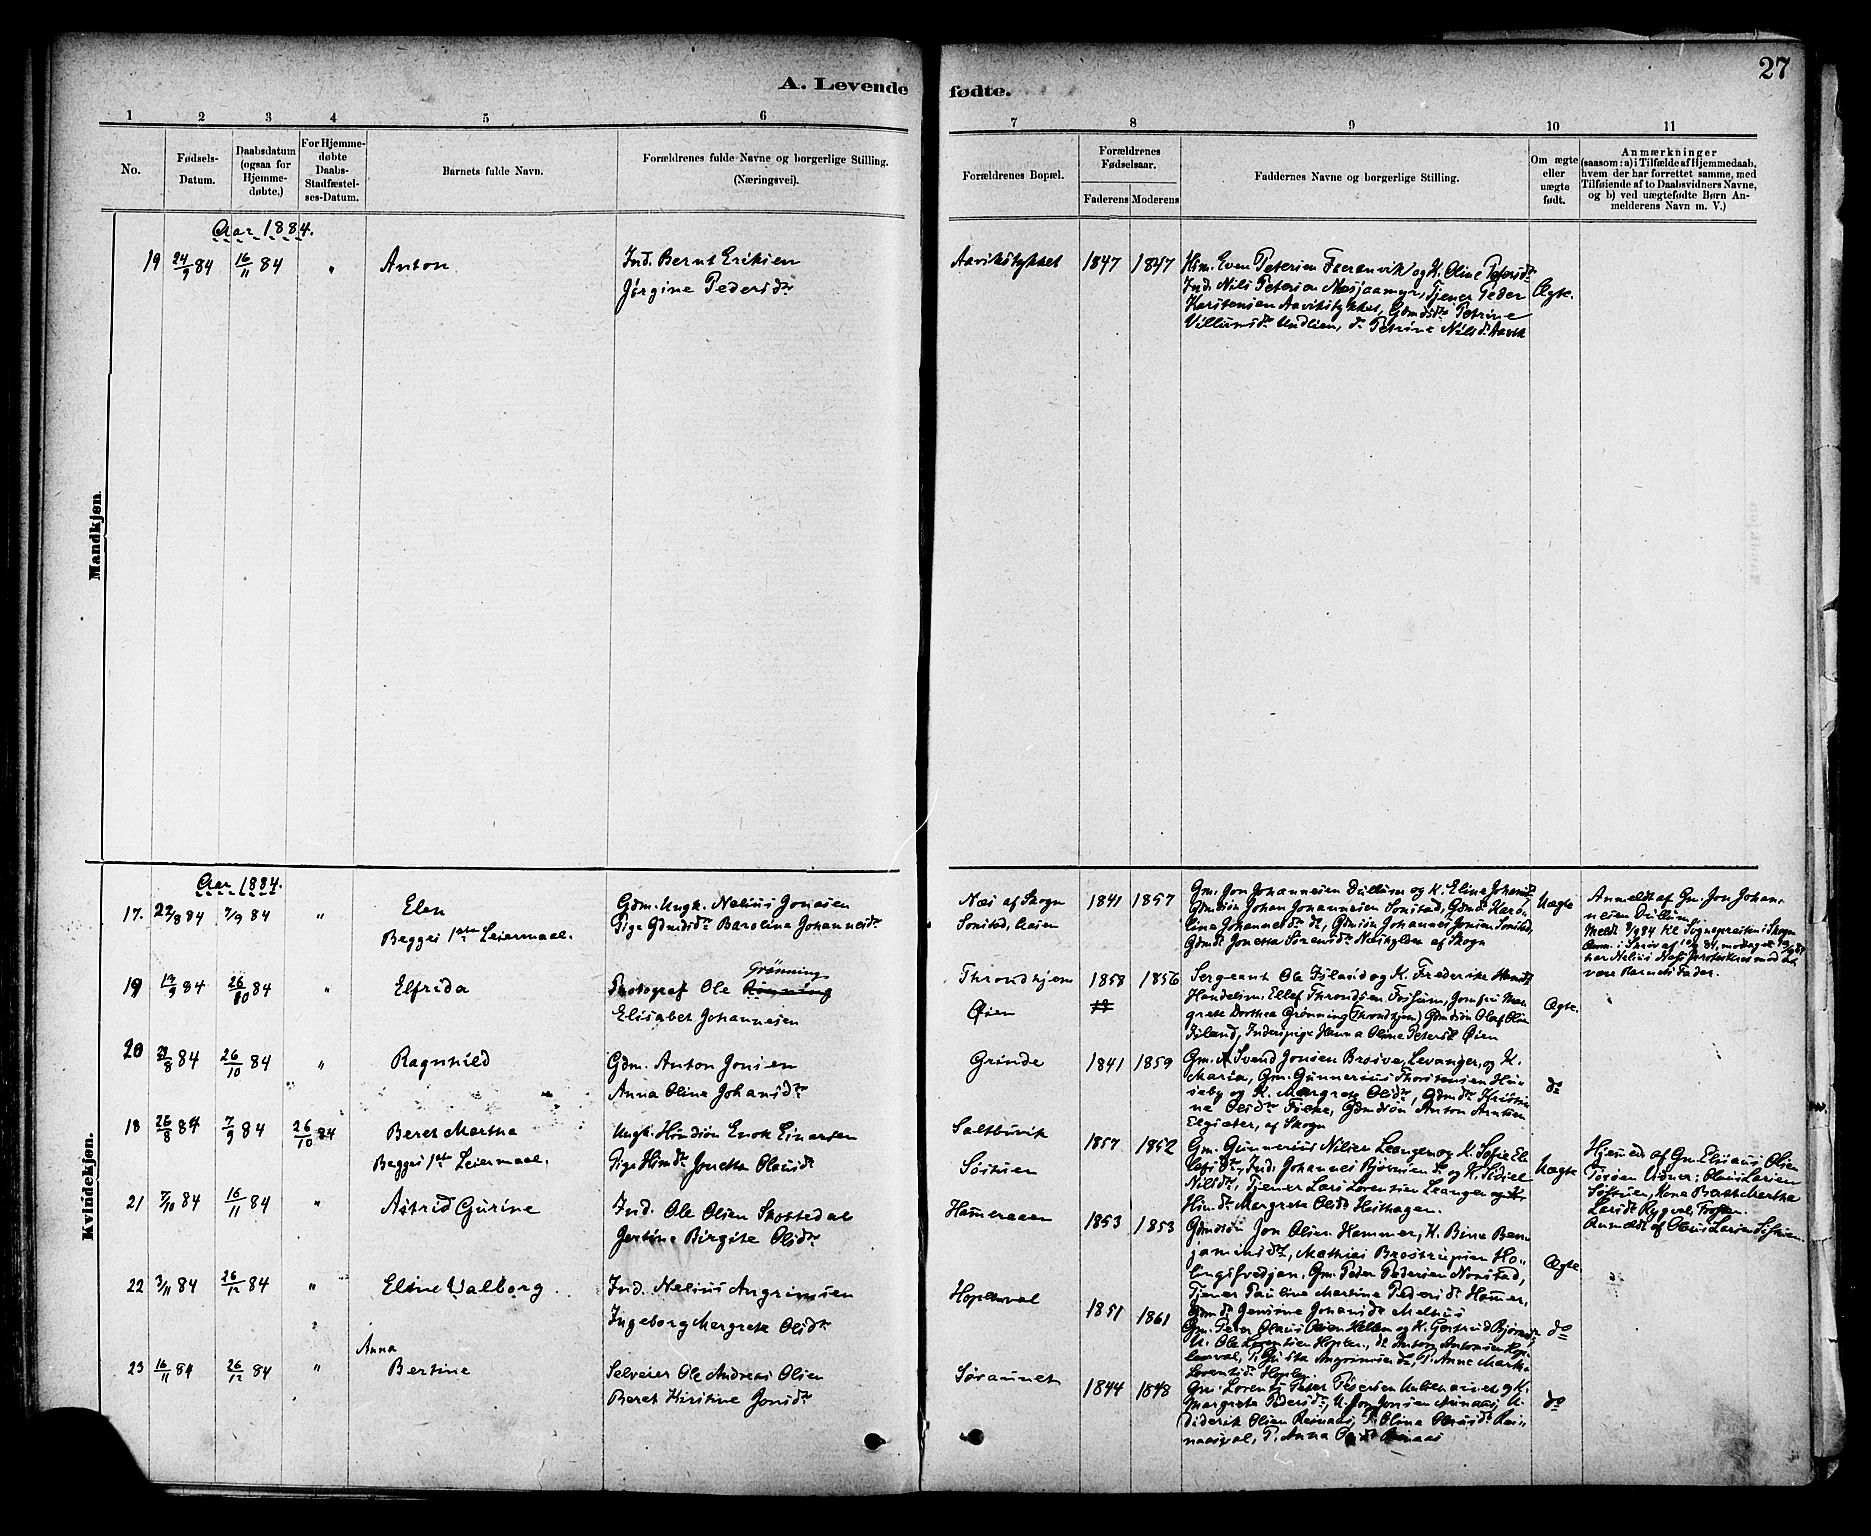 27
A. Levende fødte.
1 2 3 4 5 6 7 8 9 10 11
No.
Fødsels-Datum.
Daabsdatum (ogsaa for Hjemme-døbte.)
For Hjemme-døbte Daabs-Stadfæstel-ses-Datum.
Barnets fulde Navn.
Forældrenes fulde Navne og borgerlige Stilling. (Næringsvei).
Forældrenes Bopæl.
Forældrenes Fødselsaar.
Faderens Moderens
Faddernes Navne og borgerlige Stilling.
Om ægte eller uægte født.
Anmærkninger
(saasom: a) i Tilfælde af Hjemmedaab,
hvem der har forrettet samme, med
Tilføiende af to Daabsvidners Navne,
og b) ved uægtefødte Børn An-
melderens Navn m. V.)
Mandkjøn.
Aar 1884.
19 24/9 84 16/11 84 " Anton
Ind. Bernt Eriksen
Jørgine Pedersdr
Aavikstykket 1847 1847
Hm. Even Petersen Faeranvik og K. Oline Petersdr
Ind. Nils Petersen Næsjaamyr, Tjener Peder
Karstensen Aavikstykket, Gdmdsdr Petrine
Villumsdr Undlien, do Petrine Nilsdr Aavik
Ægte.
Kvindekjøn.
Aar 1884.
17. 22/8 84 7/9 84 " Elen
Begges 1ste Leiermaal.
Gdm. Ungk. Nelius Jonasen
Pige Gdmdsdr Barolina Johannesdr
Næs af Skogn
Sonstad, Aasen
1841 1857
Gm. Jon Johannesen Dullum og K. Eline Johansdr
Gdmdsøn Johan Johannesen Sonstad, Gdmdr Karo-
line Johannesdr do, Gdmsøn Johannes Jonsen Sonstad,
Gdmdr Jonetta Sørensdr Næshylden af Skogn
Uægte
Anmeldt af Gm. Jon Johan-
nesen Dullum.
19 13/9 84 26/10 84 " Elfrida
Grønning
Photograf Ole
Elisabet Johannesen
Throndhjem
Øien
1858 1856
Sergeant Ole Island og K. Frederike
Handelsm. Ellef Throndsen Fosheim, Jomfru Mar-
grete Dorthea Grønning (Throndhjem) Gdmdsøn Olaf Olsen
Island, Inderstpige Hanna Oline Petersdr Øien
Ægte.
20 29/8 84 26/10 84 " Ragnhild
Gdm. Anton Jonsen
Anna Oline Johansdr
Grinde 1841 1859
Gm. Svend Jonsen Brusve, Levanger, og K.
Maria, Gm. Gunnerius Thorstensen Hu-
seby og K. Margrete Olsdr, Gdmdr Kristi-
ne Olsdr Fiske, Gdmdsøn Anton Arntsen
Elgsæter, af Skogn
do
18 26/8 84 7/9 84 26/10 84 Beret Martha
Begges 1ste Leiermaal.
Ungk. Hmdsøn Enok Einarsen
Pige Hmdr Jonetta Olausdr
Saltbuvik
Søstuen
1857 1852
Gm. Gunnerius Nilsen Leangen og K. Sofie El-
lefsdr, Ind. Johannes Bjørnsen do og K. Sidsel
Nilsdr, Tjener Lars Lorentsen Leangen og K.
Hmdr Margrete Olsdr Hesthagen.
Uægte
Hjemmed. af Gm. Elisæus Olsen
Torsøen Vidner: Olaus Larsen
Søstuen, Kone Beret Martha
Larsdr Rygvol, Frosten.
Anmeldt af Olaus Larsen Søstuen.
21 7/10 84 16/11 84 " Astrid Gurine
Ind. Ole Olsen Skottedal
Jertine Birgite Olsdr
Hammeraaen 1853 1853
Gdmdsøn Jon Olsen Hammer, K. Bine Ben-
jaminsdr, Mathias Brostrupsen Ho-
lingsfvedjan. Gm. Peder Pedersen Nonstad,
Tjener Pauline Martine Pedersdr Hammer,
Gdmdr Jensine Johansdr Melhus
Ægte.
22 3/11 84 26/12 84 " Eline Valborg
Ind. Nelius Angrimsen
Ingeborg Margrete Olsdr
Hoplenval 1851 1861
Gm. Peter Olaus Olsen Hellem og K. Gertrud Bjørnsdr
U. Ole Lorentsen Hoplen, do Anton Antonsen Hop-
lenval, P. Gusta Angrimsen do, P. Anne Martha
Lorentsdr Hoplen.
do
23 16/11 84 26/12 84 " Anna
Bertine
Selveier Ole Andreas Olsen
Beret Kirstine Jonsdr
Søraunet 1844 1848
Gm. Lorents Peter Petersen og K.
Margrete Pedersdr, U. Jon Jonsen Reinaas, U.
Diderik Olsen Reinaas, P. Olina Olausdr Rei-
naasval, P. Anna Olsdr Reinaas
do